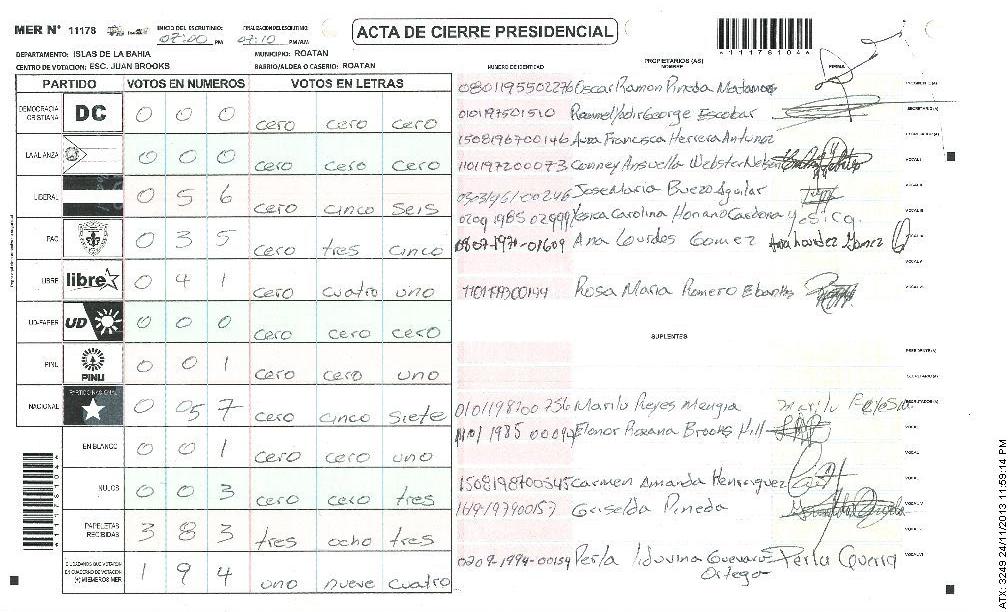 MER N° 11178 INICIO DEL ESCRUTINIO: 07:00 PM FINALIZACION DEL ESCRUTINIO: 07:10 PM/AM
ACTA DE CIERRE PRESIDENCIAL
*11178104*
DEPARTAMENTO: ISLAS DE LA BAHIA MUNICIPIO: ROATAN
CENTRO DE VOTACION: ESC. JUAN BROOKS BARRIO/ALDEA O CASERIO: ROATAN
PARTIDO VOTOS EN NUMEROS VOTOS EN LETRAS
DEMOCRACIA CRISTIANA DC 0 0 0 cero cero cero
LA ALIANZA 0 0 0 cero cero cero
LIBERAL 0 5 6 cero cinco seis
PAC 0 3 5 cero tres cinco
LIBRE libre 0 4 1 cero cuatro uno
UD-FAPER UD 0 0 0 cero cero cero
PINU PINU 0 0 1 cero cero uno
NACIONAL PARTIDO NACIONAL 0 5 7 cero cinco siete
EN BLANCO 0 0 1 cero cero uno
NULOS 0 0 3 cero cero tres
PAPELETAS RECIBIDAS 3 8 3 tres ocho tres
CIUDADANOS QUE VOTARON EN CUADERNO DE VOTACION (+) MIEMBROS MER 1 9 4 uno nueve cuatro
*11178104*
NUMERO DE IDENTIDAD PROPIETARIOS (AS) NOMBRE FIRMA
0801195502276 Oscar Ramon Pineda PRESIDENTE(A)
0101197501510 George Escobar SECRETARIO(A)
1508196700146 Francisca Herrera Antunez
1101197200073 Webster VOCAL I
Jose Maria Buezo Aguilar VOCAL II
0209 1985 02999 Yesica Carolina Yesica VOCAL III
0807-1971-01609 Ana Lourdes Gomez Ana Lourdes Gomez
VOCAL V
Rosa Maria Romero Ebanks
SUPLENTES
PRESIDENTE(A)
SECRETARIO(A)
Marilu Reyes Mengia Marilu
1101 1985 Roxana Brooks Hill
1508198700345 Carmen Amanda Henriquez
Griselda Pineda
0209-1994-00154 Perla Perla
Ortega
ATX: 3249 24/11/2013 11:59:14 PM